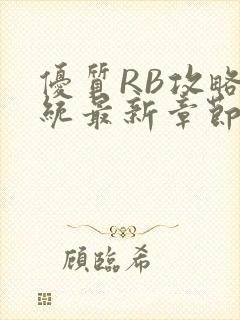 優質RB攻略
統最新章節
顧臨希